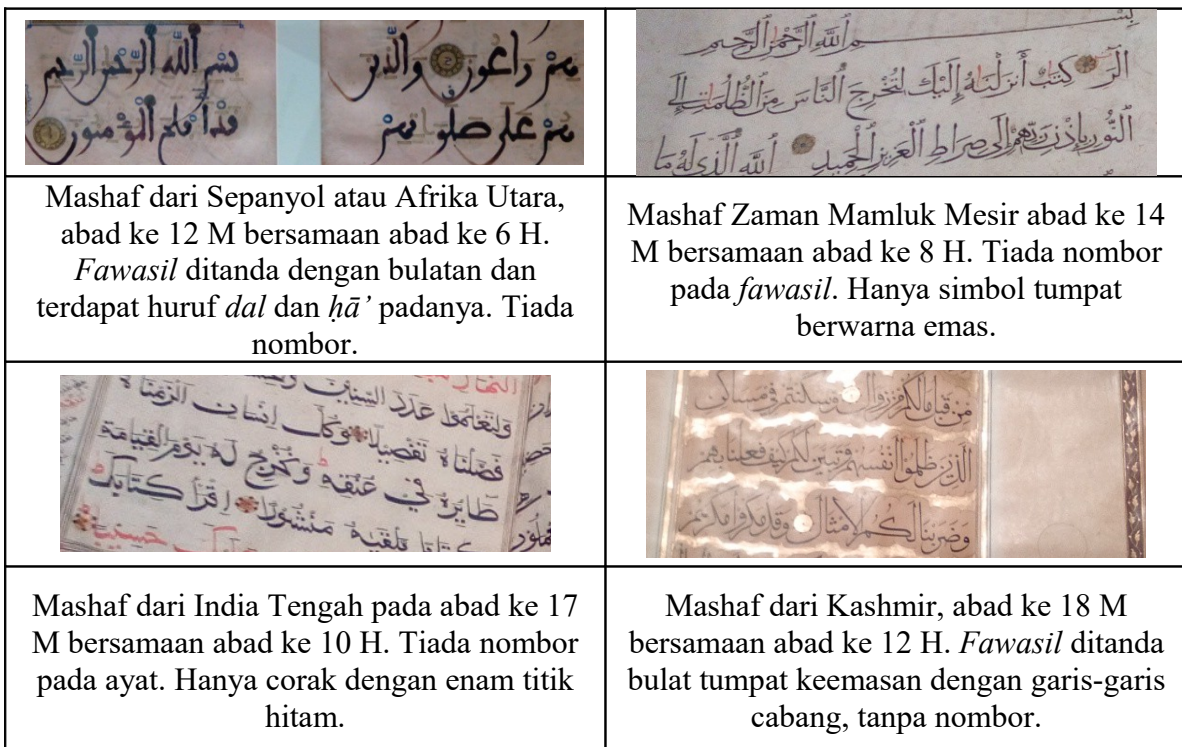 بسم الله الرحمن الرحيم
قد أفلح المؤمنون
هم راعون والذين
هم على صلواتهم
بسم الله الرحمن الرحيم
الر كتاب أنزلناه إليك لتخرج الناس من الظلمات إلى
النور بإذن ربهم إلى صراط العزيز الحميد الله الذي له ما
Mashaf dari Sepanyol atau Afrika Utara,
abad ke 12 M bersamaan abad ke 6 H.
Fawasil ditanda dengan bulatan dan
terdapat huruf dal dan ḥā’ padanya. Tiada
nombor.
Mashaf Zaman Mamluk Mesir abad ke 14
M bersamaan abad ke 8 H. Tiada nombor
pada fawasil. Hanya simbol tumpat
berwarna emas.
ولتعلموا عدد السنين
فصلناه تفصيلا وكل إنسان ألزمناه
طايره في عنقه ونخرج له يوم القيامة
كتابا يلقيه منشورا اقرأ كتابك
من قبل مالكم من زوال وسكنتم في مساكن
الذين ظلموا أنفسهم وتبين لكم كيف فعلنا بهم
وضربنا لكم الأمثال وقد مكروا مكرهم
Mashaf dari India Tengah pada abad ke 17
M bersamaan abad ke 10 H. Tiada nombor
pada ayat. Hanya corak dengan enam titik
hitam.
Mashaf dari Kashmir, abad ke 18 M
bersamaan abad ke 12 H. Fawasil ditanda
bulat tumpat keemasan dengan garis-garis
cabang, tanpa nombor.